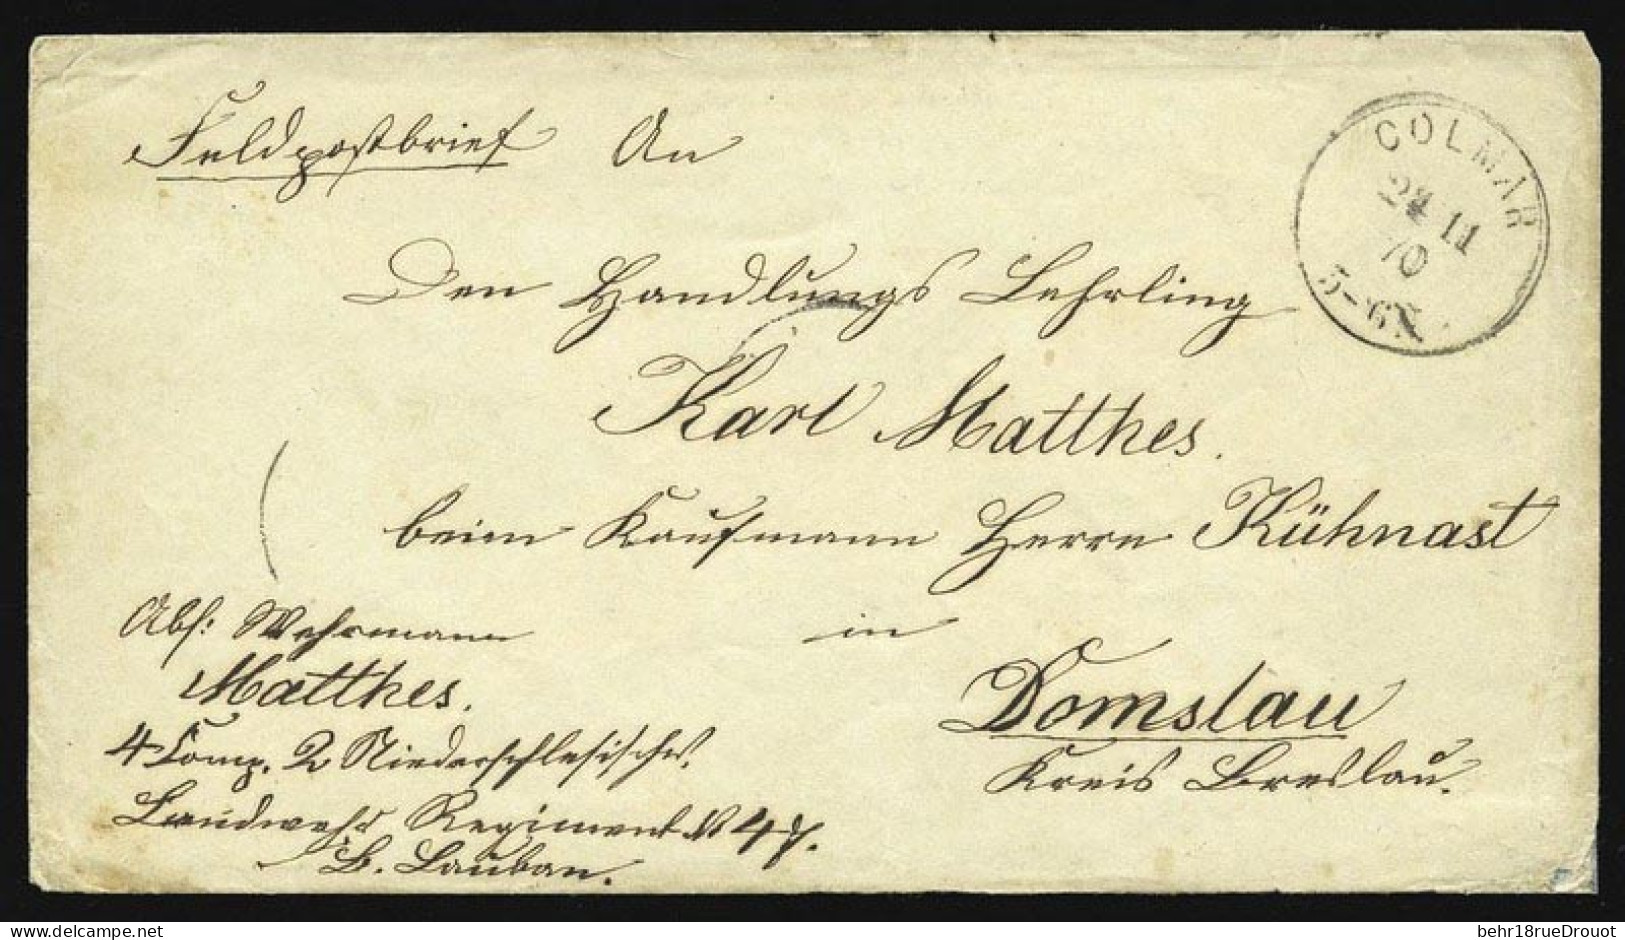 Feldpostbrief An
COLMAR
24 11
70
5-6N
Den Handlungs Lehrling
Karl Matthes.
beim Kaufmann Herrn Kühnast
in
Domslau
Kreis Breslau.
Abs: Wehrmann
Matthes.
4 Comp. 2 Niederschlesisches.
Landwehr Regiment No 47.
B. Lauban.
delcampe.net
behr18rueDrouot